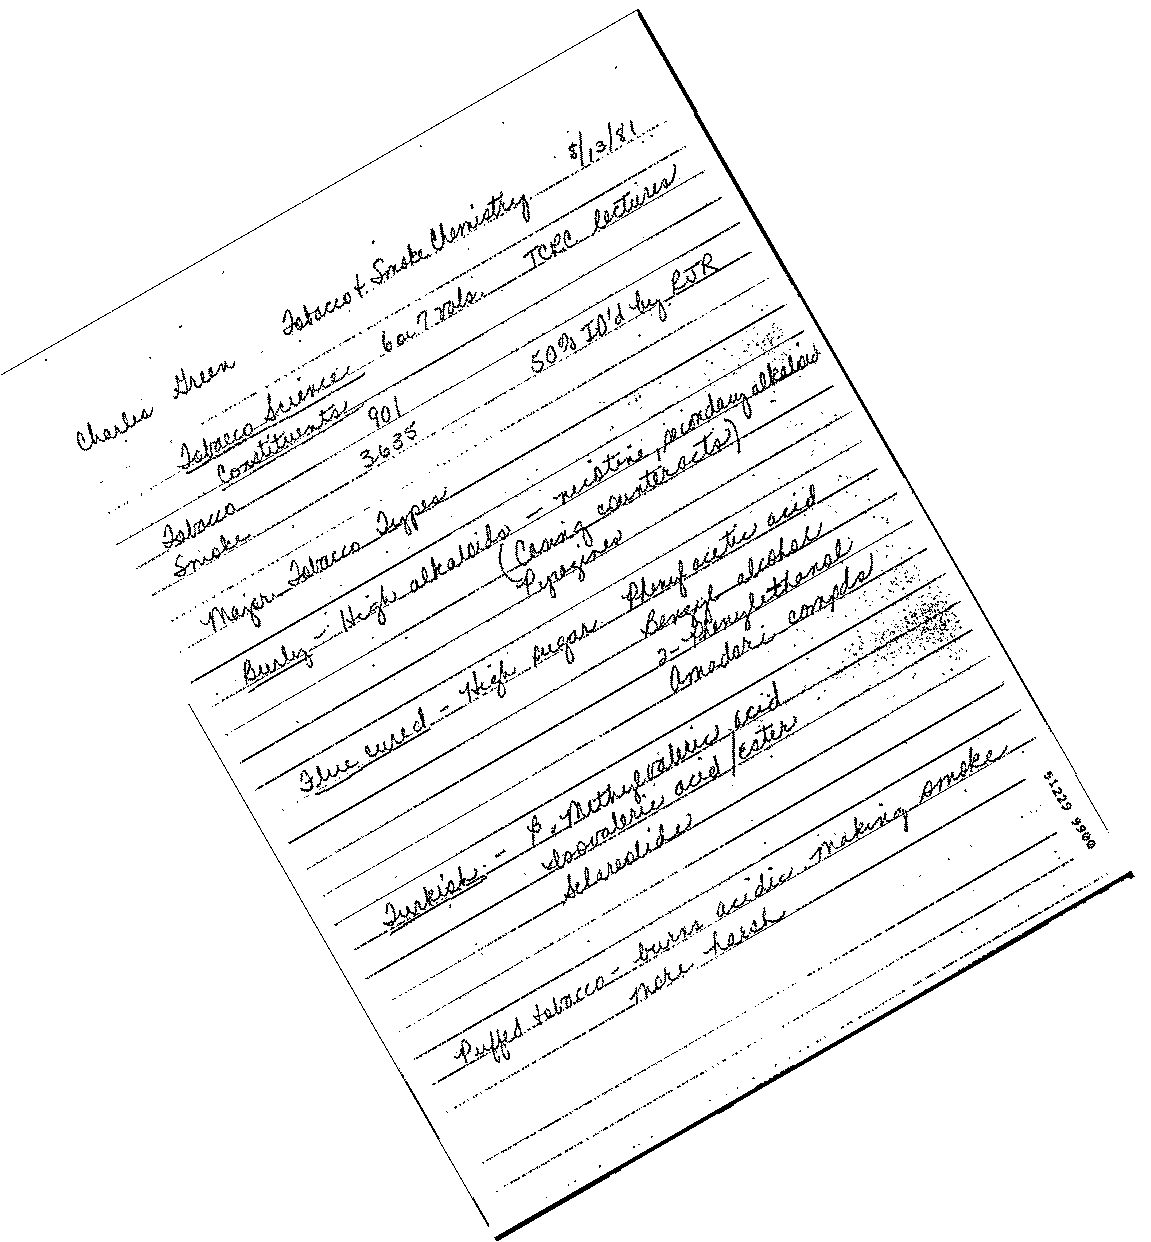 8/13/81
Charles Green Tobacco & Smoke Chemistry
Tobacco Science 6 or 7 vols. TCRC lectures
Constituents
Tobacco 901 50% ID'd by RJR
Smoke 3635
Major Tobacco Types
Burley - High alkaloids - nicotine, secondary alkaloids
(Casing counteracts)
Flue cured - High sugar Phenylacetic acid
Benzyl alcohol
2-Phenylethanol
Amadori compds
Turkish - β-Methylvaleric acid
Isovaleric acid/ester
Sclareolide
Puffed tobacco - burns acidic making smoke
more harsh